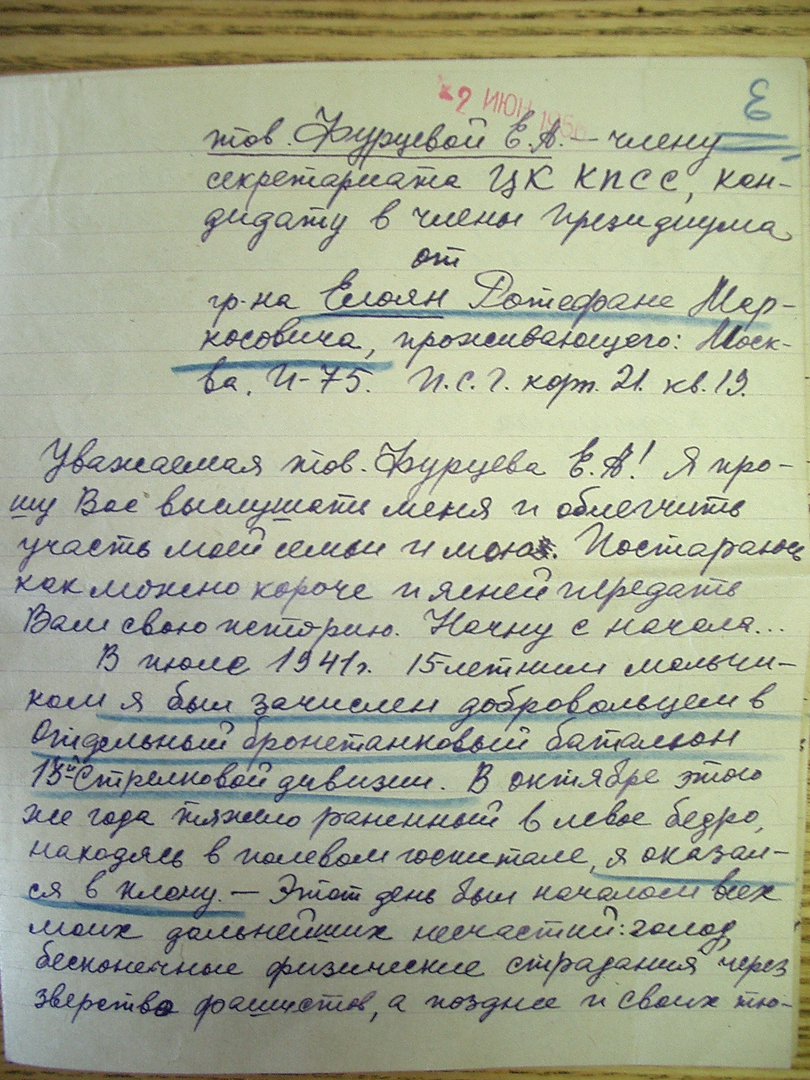 2 ИЮН 1956
Е
тов. Фурцевой Е.А. – члену
секретариата ЦК КПСС, кан-
дидату в члены президиума
от
гр-на Елоян Ротефане Мар-
косовича, проживающего: Моск-
ва, И-75. П.С.Г. корп. 21. кв. 19.
Уважаемая тов. Фурцева Е.А! Я про-
шу Вас выслушать меня и облегчить
участь моей семьи и мою. Постараюсь
как можно короче и ясней передать
Вам свою историю. Начну с начала...
В июле 1941г. 15-летним мальчи-
ком я был зачислен добровольцем в
Отдельный бронетанковый батальон
13й Стрелковой дивизии. В октябре этого
же года тяжело раненный в левое бедро,
находясь в полевом госпитале, я оказал-
ся в плену. – Этот день был началом всех
моих дальнейших несчастий: голод,
бесконечные физические страдания через
зверство фашистов, а позднее и своих тю-